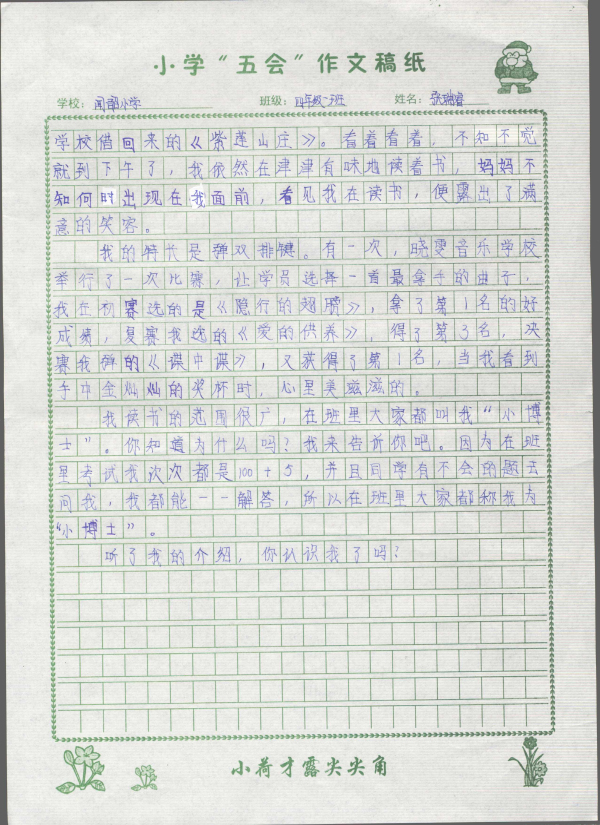 小学“五会”作文稿纸
学校：闻韶小学 班级：四年级一班 姓名：张瑞睿
学校借回来的《紫莲山庄》。看着看着，不知不觉
就到下午了，我依然在津津有味地读着书，妈妈不
知何时出现在我面前，看见我在读书，便露出了满
意的笑容。
我的特长是弹双排键。有一次，晓雯音乐学校
举行了一次比赛，让学员选择一首最拿手的曲子，
我在初赛选的是《隐行的翅膀》，拿了第1名的好
成绩，复赛我选的《爱的供养》，得了第3名，决
赛我弹的《谍中谍》，又获得了第1名，当我看到
手中金灿灿的奖杯时，心里美滋滋的。
我读书的范围很广，在班里大家都叫我“小博
士”。你知道为什么吗？我来告诉你吧。因为在班
里考试我次次都是100+5，并且同学有不会的题去
问我，我都能一一解答，所以在班里大家都称我为
“小博士”。
听了我的介绍，你认识我了吗？
小荷才露尖尖角